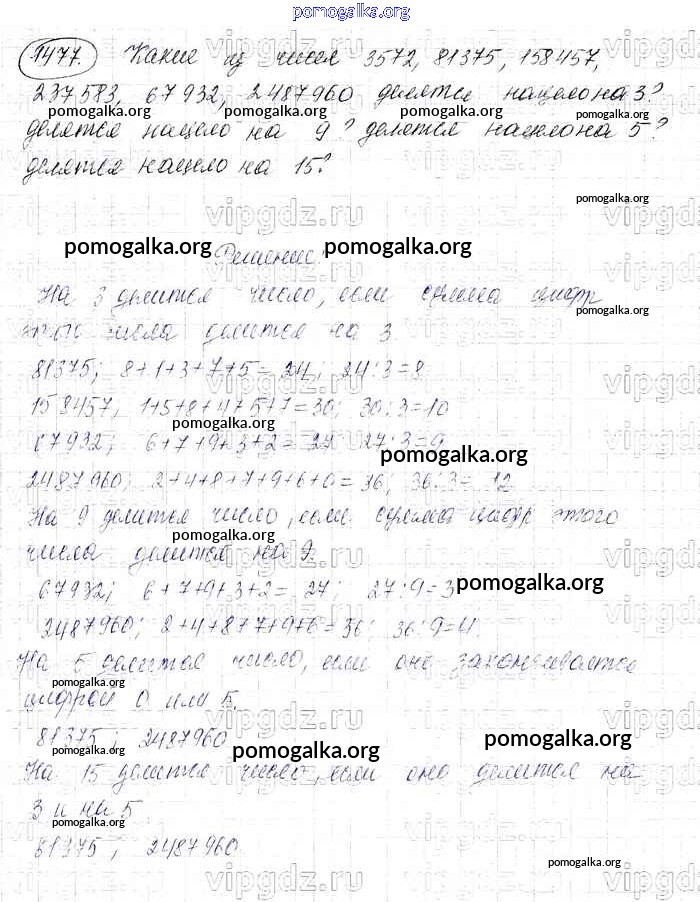 pomogalka.org
1477. Какие из чисел 3572, 81375, 158457,
237583, 67932, 2487960 делятся нацело на 3?
делятся нацело на 9? делятся нацело на 5?
делятся нацело на 15?
pomogalka.org Решение. pomogalka.org
На 3 делится число, если сумма цифр
этого числа делится на 3
81375; 8+1+3+7+5=24; 24:3=8
158457, 1+5+8+4+5+7=30; 30:3=10
67932; 6+7+9+3+2=27 27:3=9
2487960; 2+4+8+7+9+6+0=36; 36:3=12
На 9 делится число, если сумма цифр этого
числа делится на 9.
67932; 6+7+9+3+2=27; 27:9=3
2487960; 2+4+8+7+9+6=36; 36:9=4.
На 5 делится число, если оно заканчивается
цифрой 0 или 5.
81375; 2487960
На 15 делится число, если оно делится на
3 и на 5
81375; 2487960.
pomogalka.org
vipgdz.ru